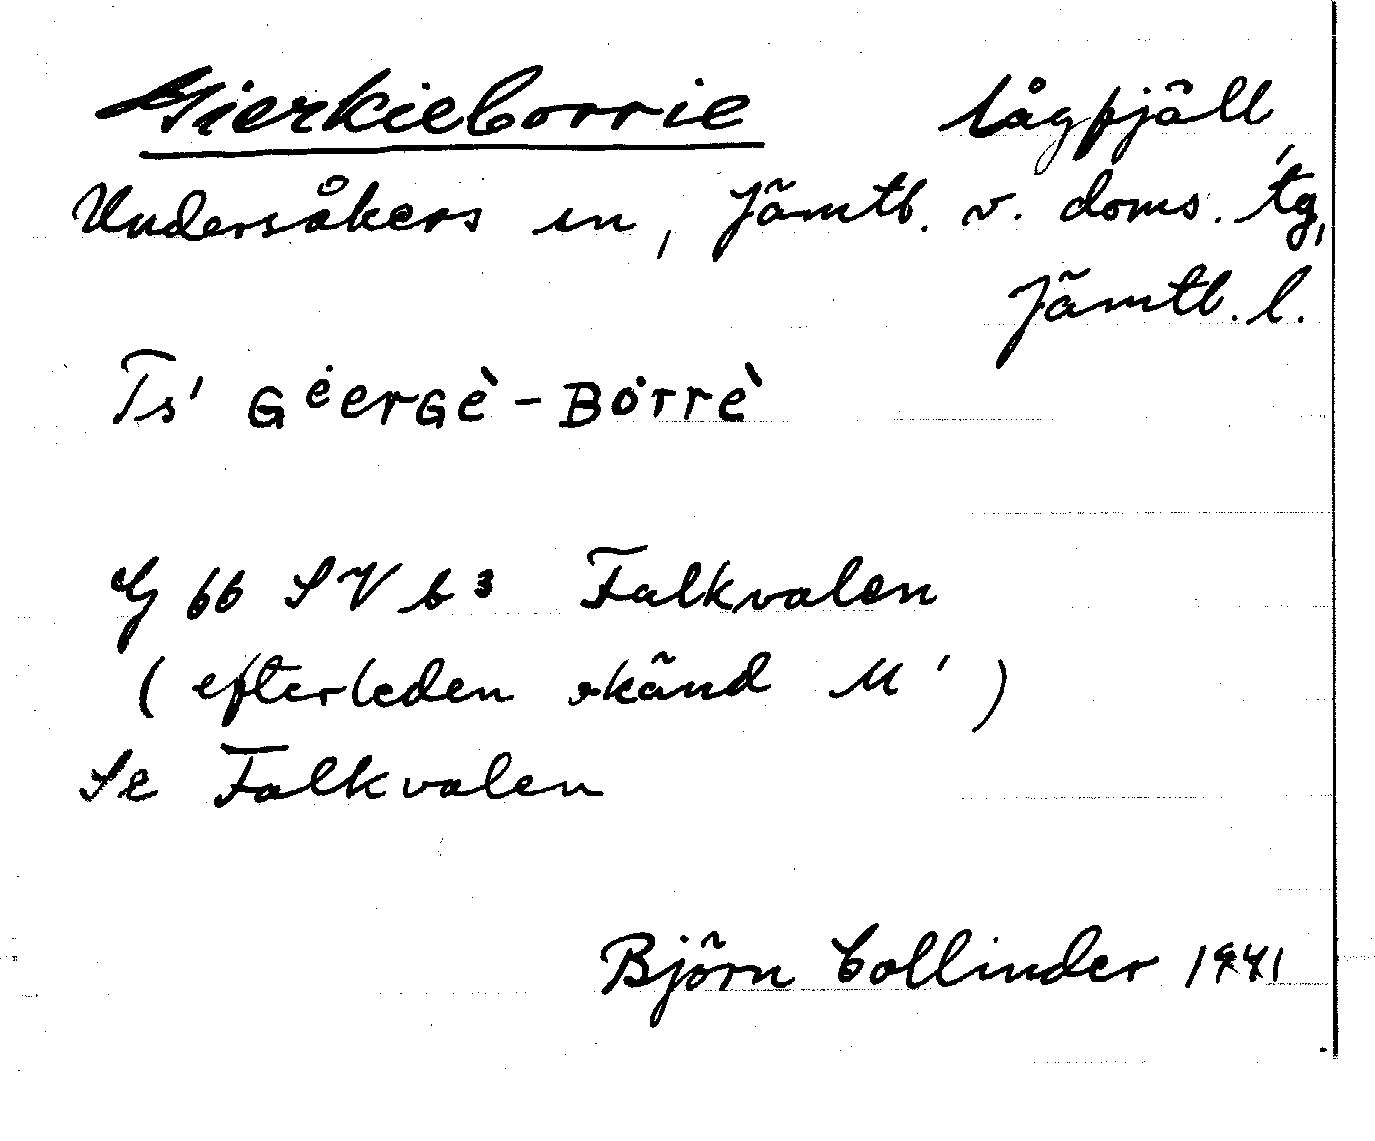 Gierkieborrie lågfjäll,
Undersåkers sn, Jämtl. v. doms. tg,
Jämtl. l.
Ts' Gėergè-Bȯrrè
G 66 SV b 3 Falkvalen
(efterleden okänd M')
Se Falkvalen
Björn Collinder 1941